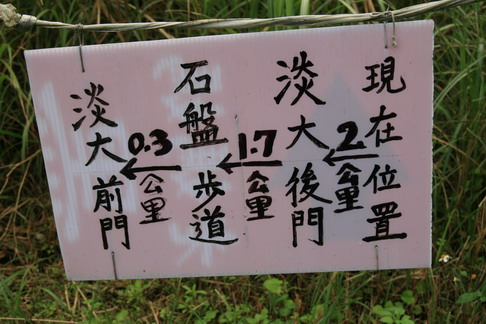 現在位置
2公里
淡大後門
1.7公里
石盤步道
0.3公里
淡大前門